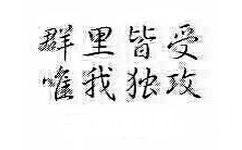 群里皆受
唯我独攻